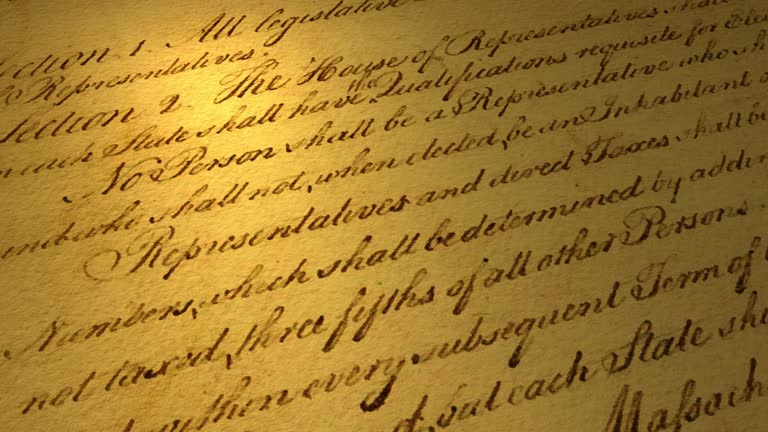 Section 1. All legislative
Representatives.
Section 2. The House of Representatives shall
each State shall have the Qualifications requisite for Elec
No Person shall be a Representative who sh
and who shall not, when elected, be an Inhabitant o
Representatives and direct Taxes shall be
Numbers, which shall be determined by addin
not taxed, three fifths of all other Persons.
within every subsequent Term of
but each State sha
Massach